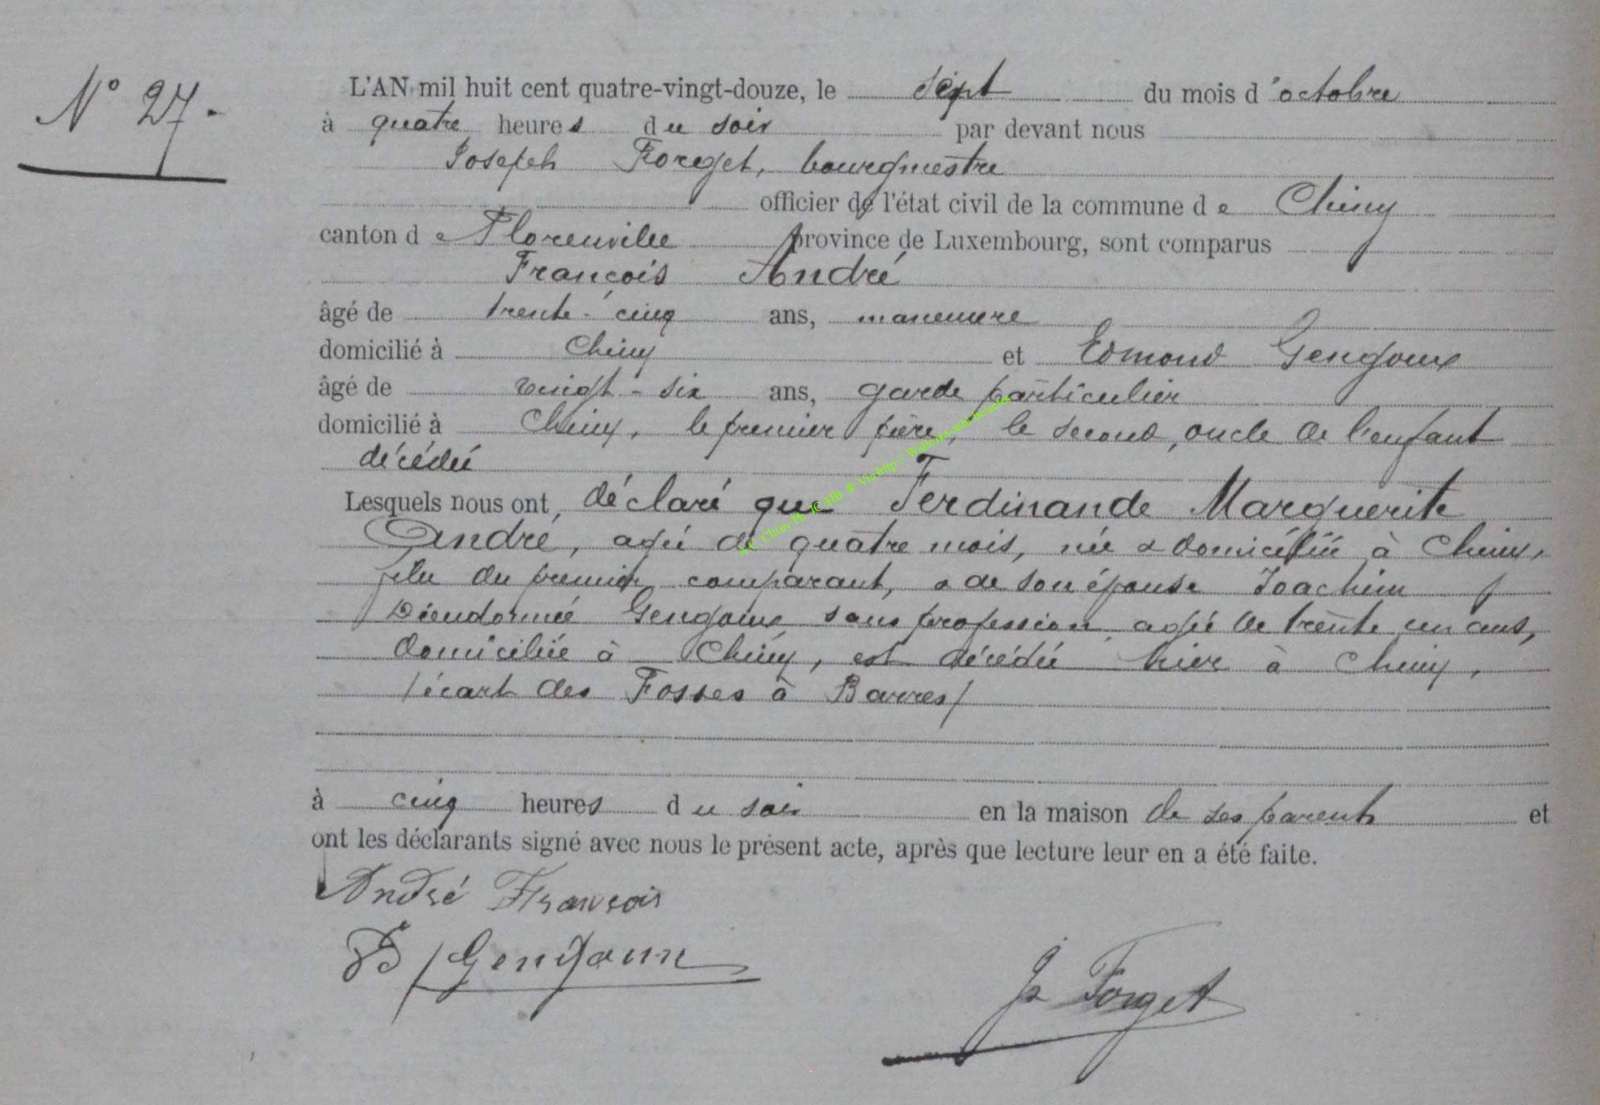 N° 27.
L'AN mil huit cent quatre-vingt-douze, le sept du mois d'octobre
à quatre heures du soir par devant nous
Joseph Forget, bourgmestre
officier de l'état civil de la commune de Chiny
canton de Florenville province de Luxembourg, sont comparus
François André
âgé de trente-cinq ans, manœuvre
domicilié à Chiny et Edmond Gengoux
âgé de vingt-six ans, garde particulier
domicilié à Chiny, le premier père, le second, oncle de l'enfant
décédé
Lesquels nous ont déclaré que Ferdinande Marguerite
André, agée de quatre mois, née & domiciliée à Chiny,
fille du premier comparant, & de son épouse Joachim
Dieudonnée Gengoux sans profession, agée de trente un ans,
domiciliée à Chiny, est décédée hier à Chiny,
/écart des Fosses à Barres/
à cinq heures du soir en la maison de ses parents et
ont les déclarants signé avec nous le présent acte, après que lecture leur en a été faite.
André François
Gengoux
Js Forget